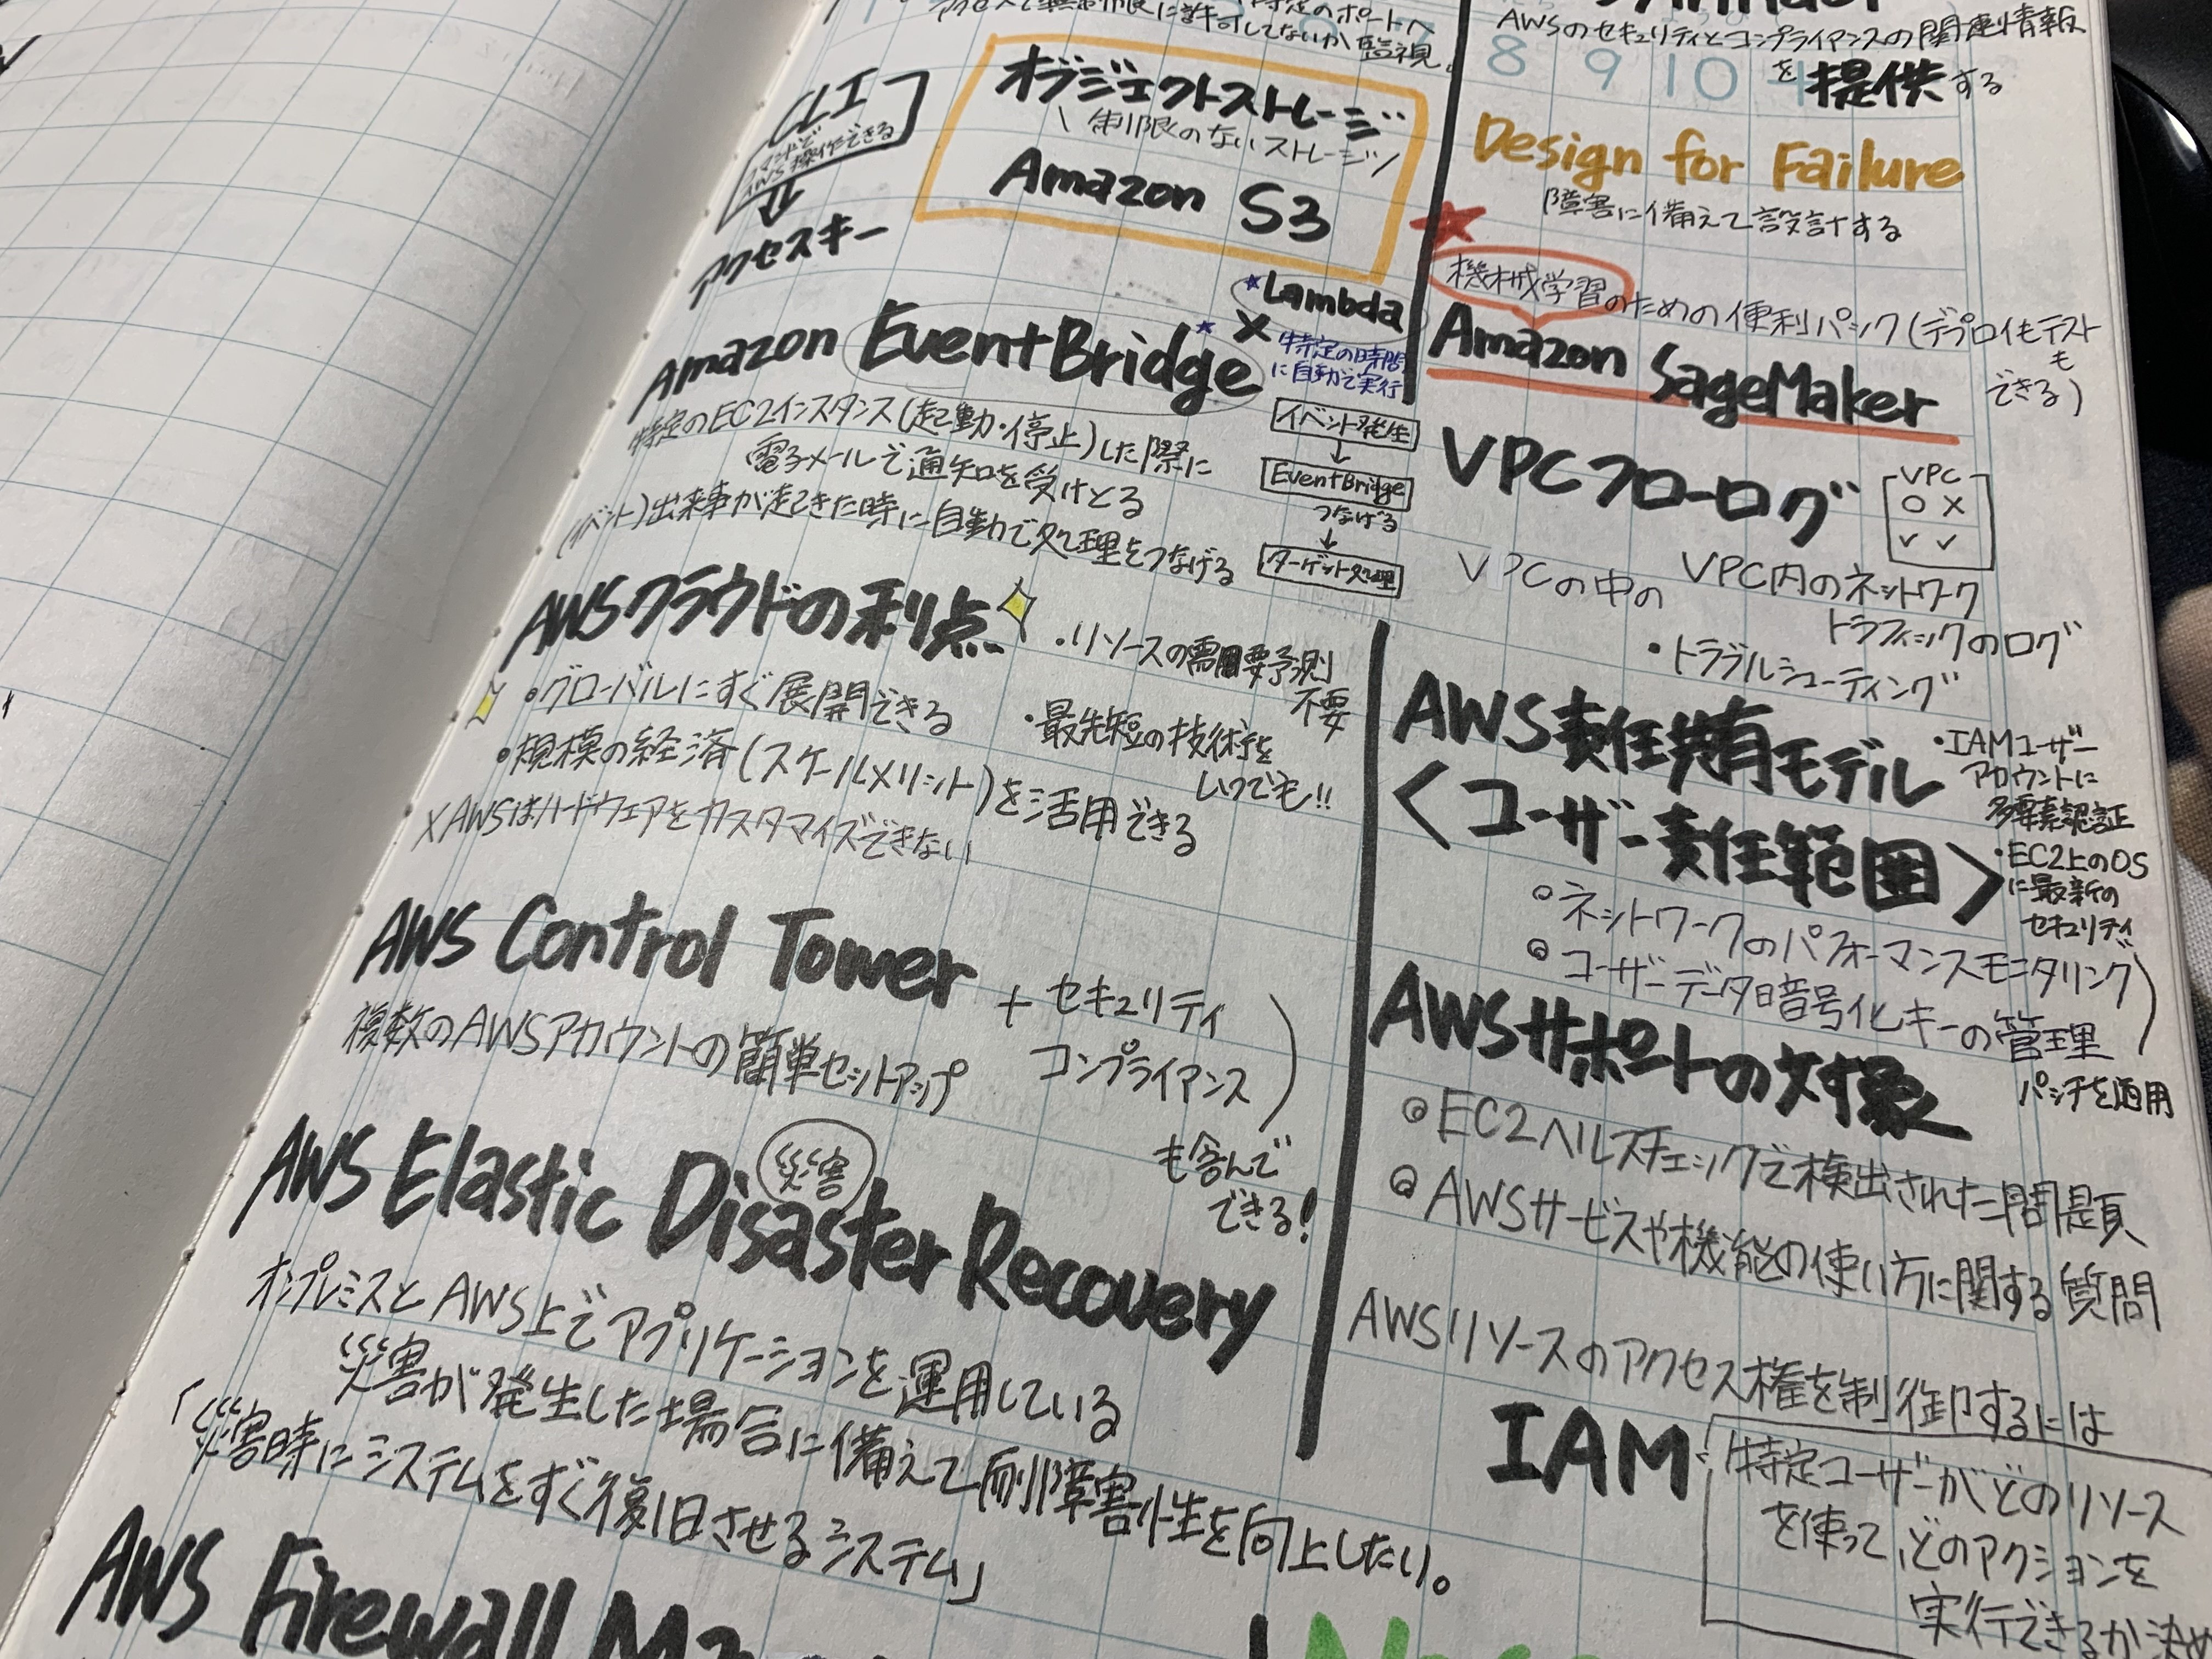 特定のポートへ
アクセスで無制限に許可してないか監視。
CLI
コマンドで
AWS操作できる
↓
アクセスキー
オブジェクトストレージ
\ 制限のないストレージ /
Amazon S3
Amazon EventBridge
★Lambda
×
特定の時間
に自動で実行
特定のEC2インスタンス(起動・停止)した際に
電子メールで通知を受けとる
(イベント)出来事が起きた時に自動で処理をつなげる
イベント発生
↓
EventBridge
つなげる
↓
ターゲット処理
AWSクラウドの利点
・グローバルにすぐ展開できる
・規模の経済(スケールメリット)を活用できる
×AWSはハードウェアをカスタマイズできない
・リソースの需要予測
不要
・最先端の技術を
いつでも!!
AWS Control Tower
複数のAWSアカウントの簡単セットアップ
+ セキュリティ
コンプライアンス
も含んで
できる!
AWS Elastic Disaster Recovery
災害
オンプレミスとAWS上でアプリケーションを運用している
災害が発生した場合に備えて耐障害性を向上したい。
「災害時にシステムをすぐ復旧させるシステム」
AWS Firewall Ma
AWSのセキュリティとコンプライアンスの関連情報
8 9 10
を提供する
Design for Failure
障害に備えて設計する
機械学習のための便利パック(デプロイもテスト
も
できる)
Amazon SageMaker
VPCフローログ
VPC
○ ×
✓ ✓
VPCの中の
VPC内のネットワーク
トラフィックのログ
・トラブルシューティング
AWS責任共有モデル
<ユーザー責任範囲>
・IAMユーザー
アカウントに
多要素認証
・EC2上のOS
に最新の
セキュリティ
パッチを適用
◎ネットワークのパフォーマンスモニタリング
◎ユーザーデータ暗号化キーの管理
AWSサポートの対象
◎EC2ヘルスチェックで検出された問題
◎AWSサービスや機能の使い方に関する質問
AWSリソースのアクセス権を制御するには
IAM
特定ユーザーがどのリソース
を使って、どのアクションを
実行できるか決め